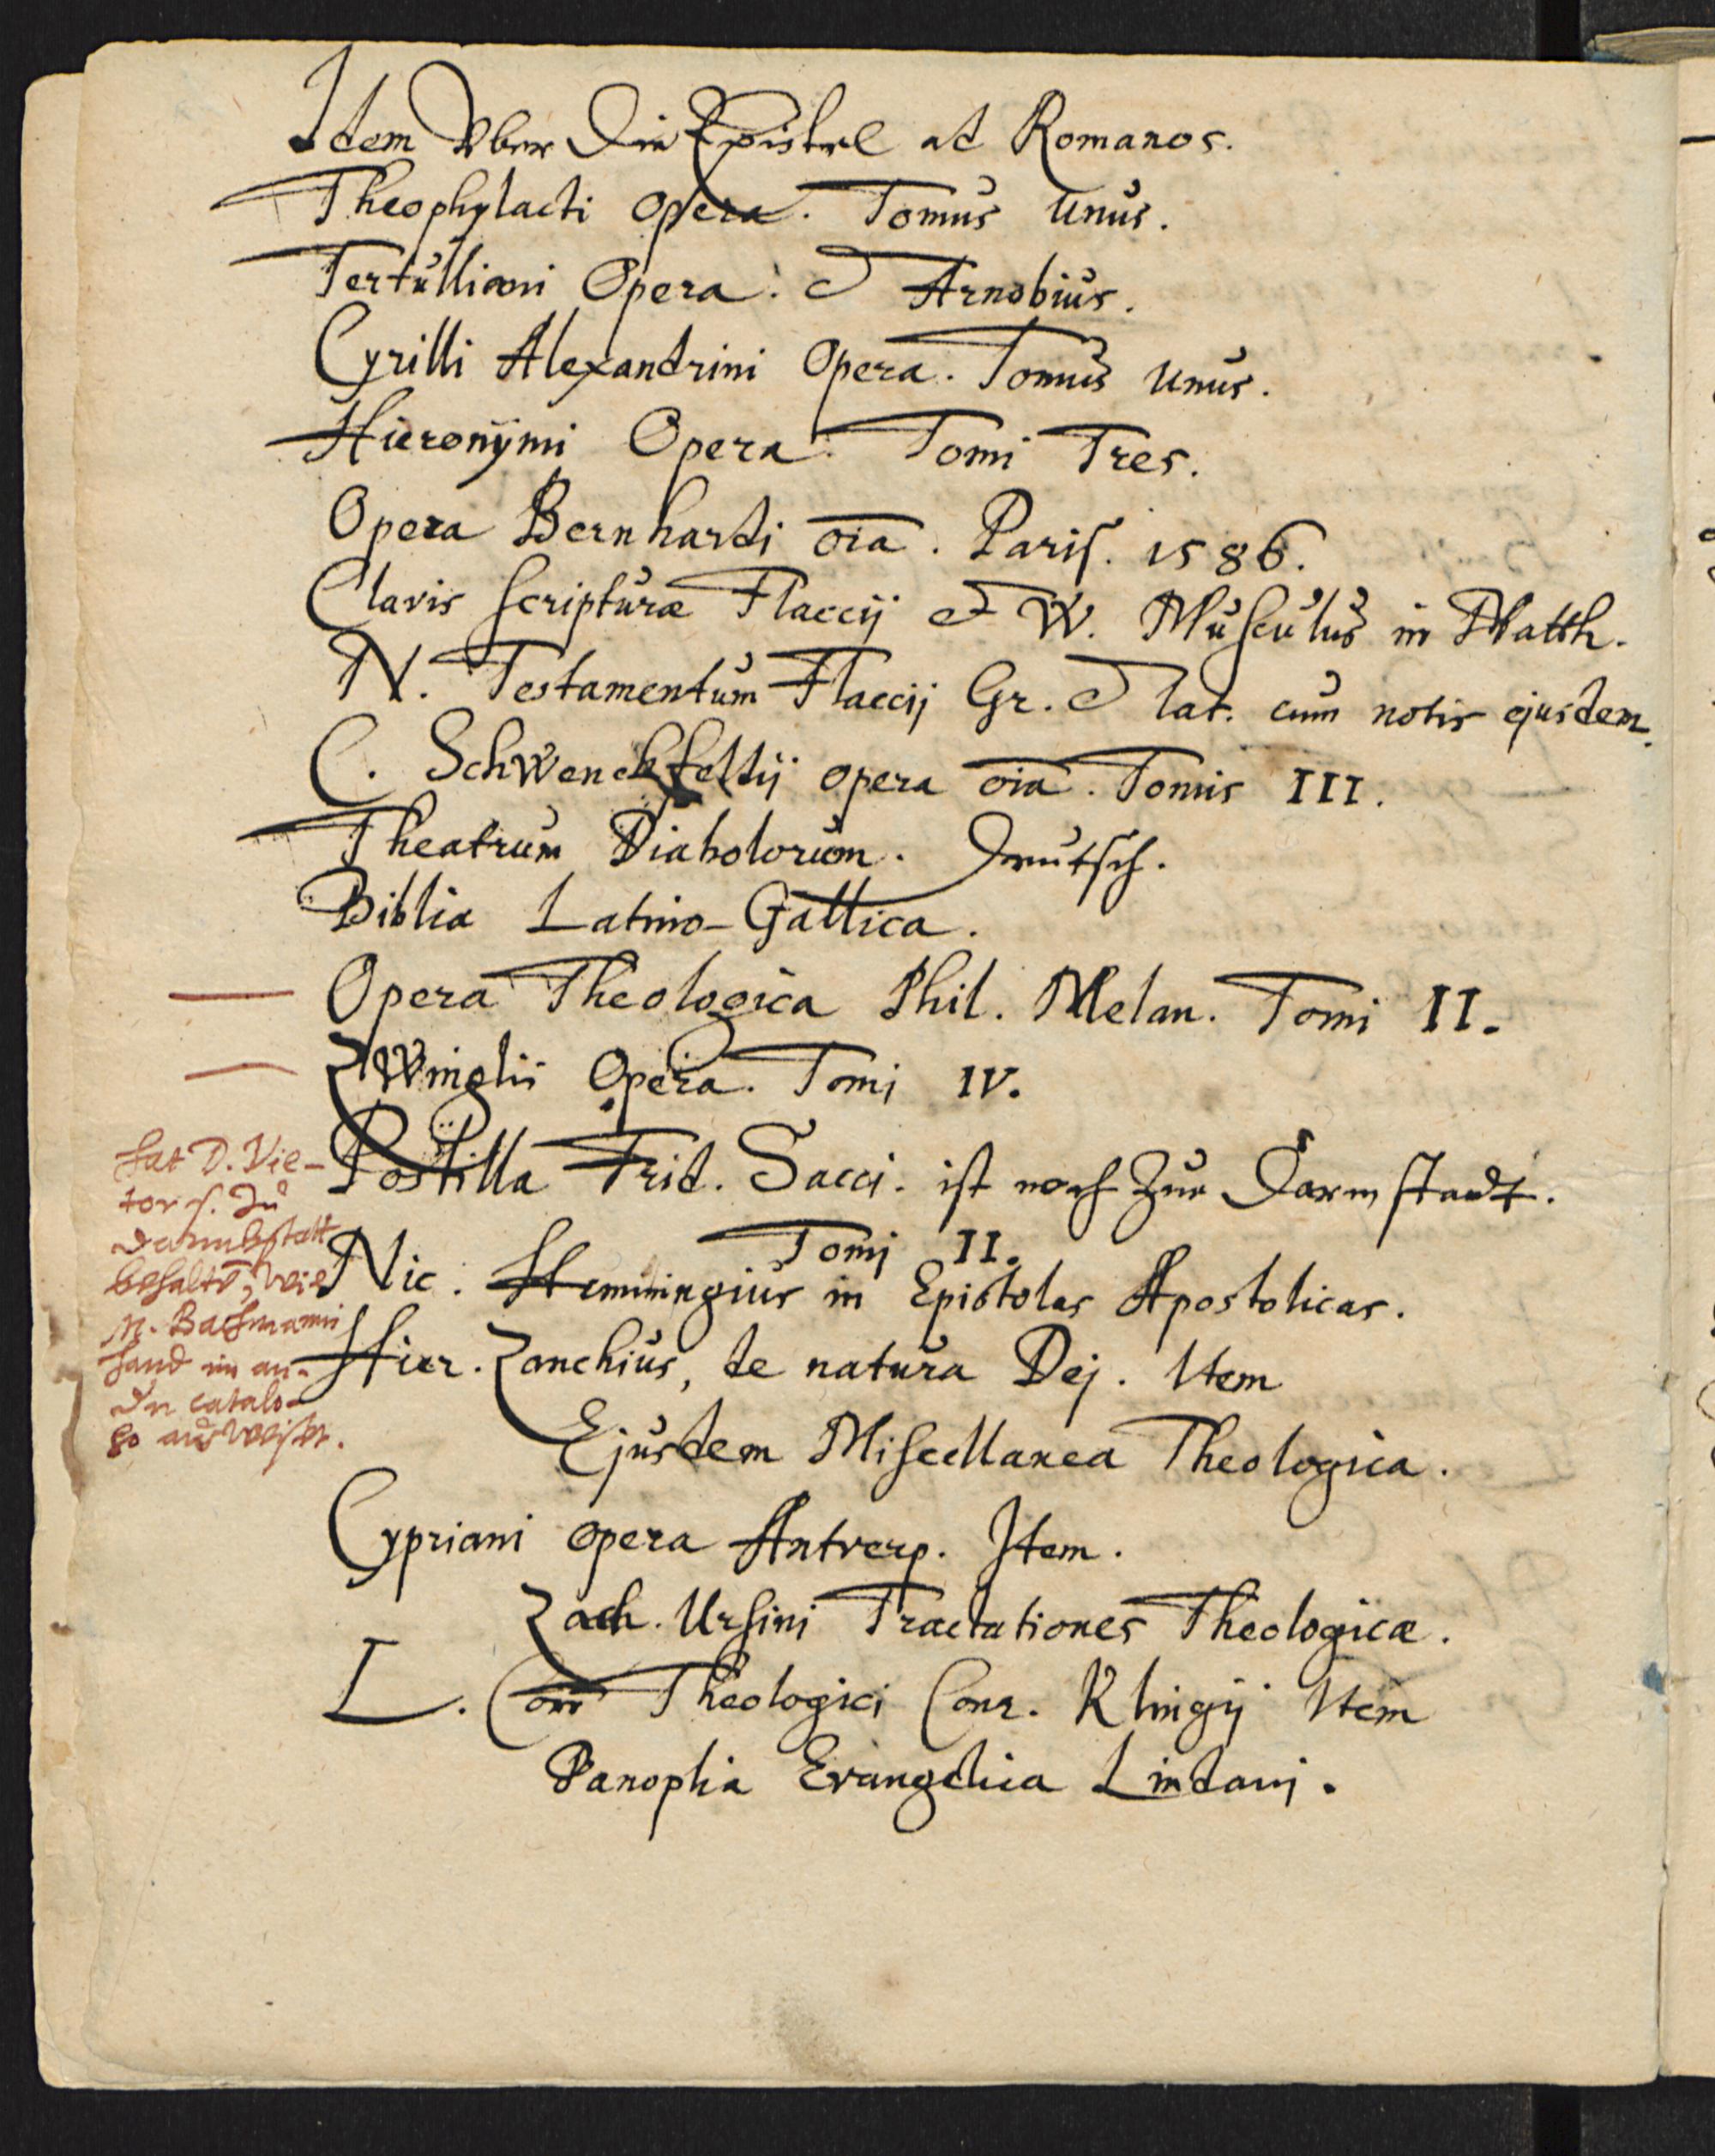 Idem Vber Die Epistel ad Romanos.
Theophylacti opera. Tomus Unus.
Tertulliani Opera. et Arnobius.
Cyrilli Alexandrini Opera. Tomus Unus.
Hieronÿmi Opera. Tomi Tres.
Opera Bernhardi oīa. Paris. 1586.
Clavis scripturæ Flaccij et W. Musculus in Matth.
N. Testamentum Flaccij Gr. et lat. cum notis ejusdem.
C. Schwenckfeltij opera oīa. Tomis III.
Theatrum Diabolorum. Deutsch.
Biblia Latino-Gallica.
Opera Theologica Phil. Melan. Tomi II.
Zwinglii Opera. Tomi IV.
Postilla Frid. Sacci. ist noch zur Darmstadt.
Tomi II.
hat D. Vie-
tor s. zu
Darmbstatt
behaltē, wie
M. Bachmanni
hand im an-
dn catalo-
go ausweiset.
Nic. Hemmingius in Epistolas Apostolicas.
Hier. Zanchius, de natura Dej. Item
Ejusdem Miscellanea Theologica.
Cypriani opera Antverp. Item.
Zach. Ursini Tractationes Theologicæ.
L. Com̄ Theologici Conr. Klingij Item
Panoplia Evangelica Lindani.